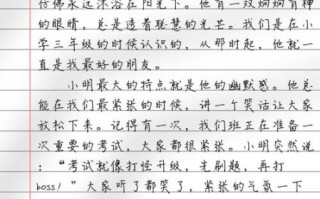 仿佛永远沐浴在阳光下。他有一双炯炯有神
的眼睛，总是透着聪慧的光芒。我们是在小
学三年级的时候认识的，从那时起，他就一
直是我最好的朋友。
小明最大的特点就是他的幽默感。他总
能在我们最紧张的时候，讲一个笑话让大家
放松下来。记得有一次，我们班正在准备一
次重要的考试，大家都很紧张。小明突然说
：“考试就像打怪升级，先刷题，再打
boss！”大家听了都笑了，紧张的气氛一下